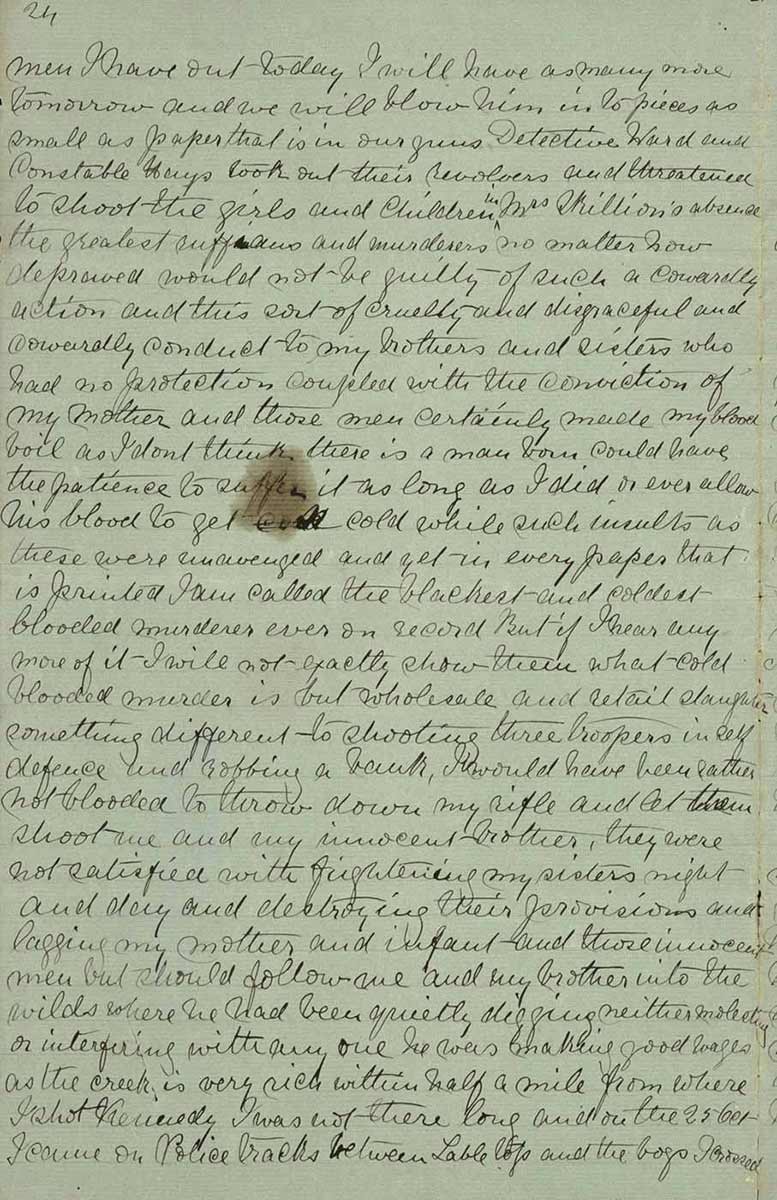 24
men I have out today I will have as many more
tomorrow and we will blow him into pieces as
small as paper that is in our guns Detective Ward and
Constable Hays took out their revolvers and threatened
to shoot the girls and children in Mrs Skillion's absence
the greatest ruffians and murderers no matter how
depraved would not be guilty of such a cowardly
action and this sort of cruelty and disgraceful and
cowardly conduct to my brothers and sisters who
had no protection coupled with the conviction of
my mother and those men certainly made my blood
boil as I dont think there is a man born could have
the patience to suffer it as long as I did or ever allow
his blood to get cold while such insults as
these were unavenged and yet in every paper that
is printed I am called the blackest and coldest
blooded murderer ever on record But if I hear any
more of it I will not exactly show them what cold
blooded murder is but wholesale and retail slaughter
something different to shooting three troopers in self
defence and robbing a bank, I would have been rather
hot blooded to throw down my rifle and let them
shoot me and my innocent brother, they were
not satisfied with frightening my sisters night
and day and destroying their provisions and
lagging my mother and infant and those innocent
men but should follow me and my brother into the
wilds where he had been quietly digging neither molesting
or interfiring with any one he was making good wages
as the creek is very rich within half a mile from where
I shot Kennedy I was not there long and on the 25 Oct
I came on Police tracks between Table top and the bogs I crossed